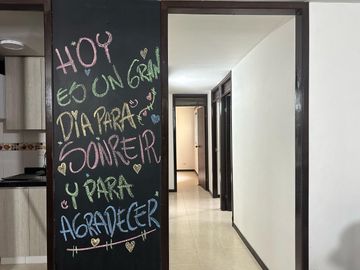 HOY
ES UN GRAN
DÍA PARA
SONREIR
Y PARA
AGRADECER